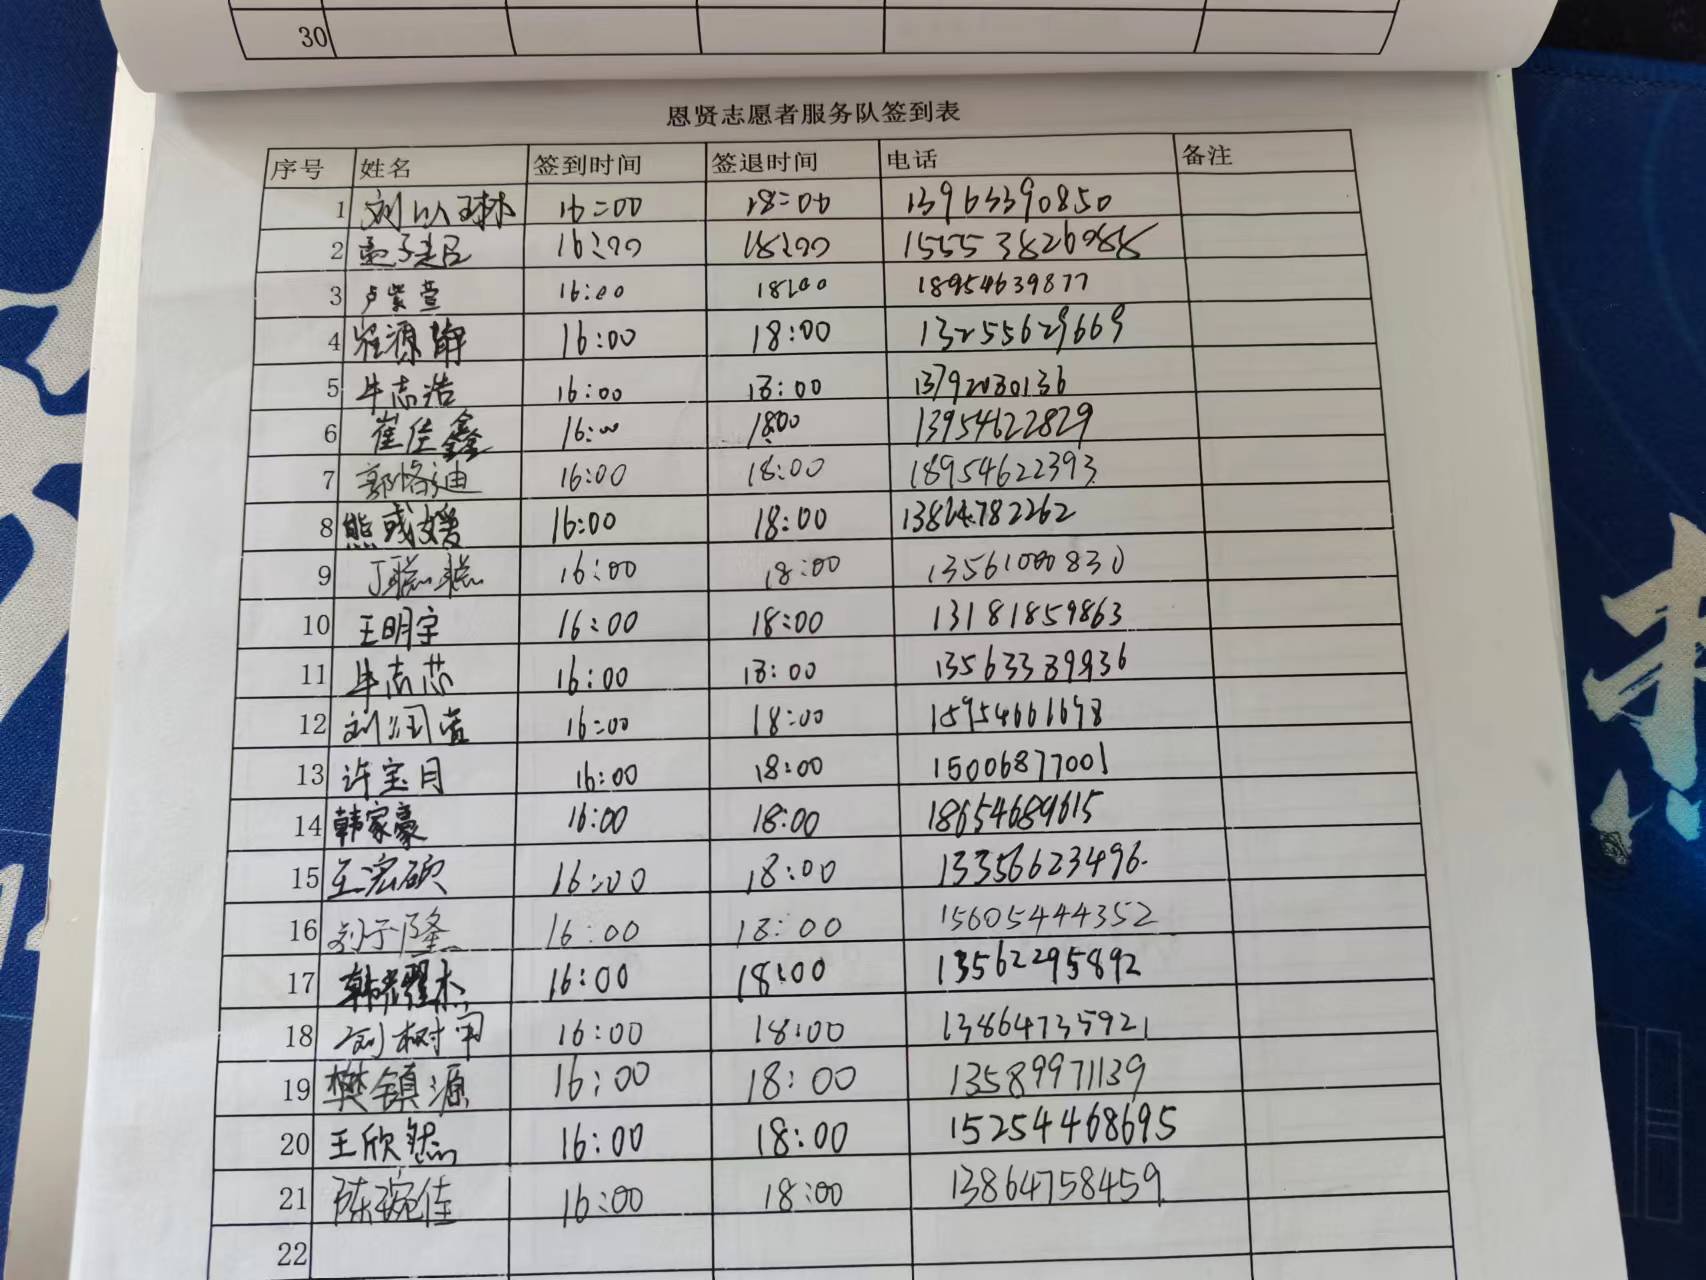 30
恩贤志愿者服务队签到表
序号 姓名 签到时间 签退时间 电话 备注
1 刘以琳 16:00 18:00 13963390850
2 16:00 18:00
3 卢紫萱 16:00 18:00 18954639877
4 崔源 16:00 18:00 13255629669
5 牛志浩 16:00 18:00 13792030136
6 崔佳鑫 16:00 18:00 13954622829
7 郭恪迪 16:00 18:00 18954622393
8 熊彧媛 16:00 18:00 13864782262
9 丁聪聪 16:00 18:00 13561000830
10 王明宇 16:00 18:00 13181859863
11 牛志芯 16:00 18:00 13563389936
12 刘润蓝 16:00 18:00 15954661698
13 许宝月 16:00 18:00 15006877001
14 韩家豪 16:00 18:00 18654689615
15 王宏硕 16:00 18:00 13356623496
16 刘子隆 16:00 18:00 15605444352
17 韩耀杰 16:00 18:00 13562295892
18 刘树 16:00 18:00 13864735921
19 樊镇源 16:00 18:00 13589971139
20 王欣然 16:00 18:00 15254468695
21 陈琬佳 16:00 18:00 13864758459
22